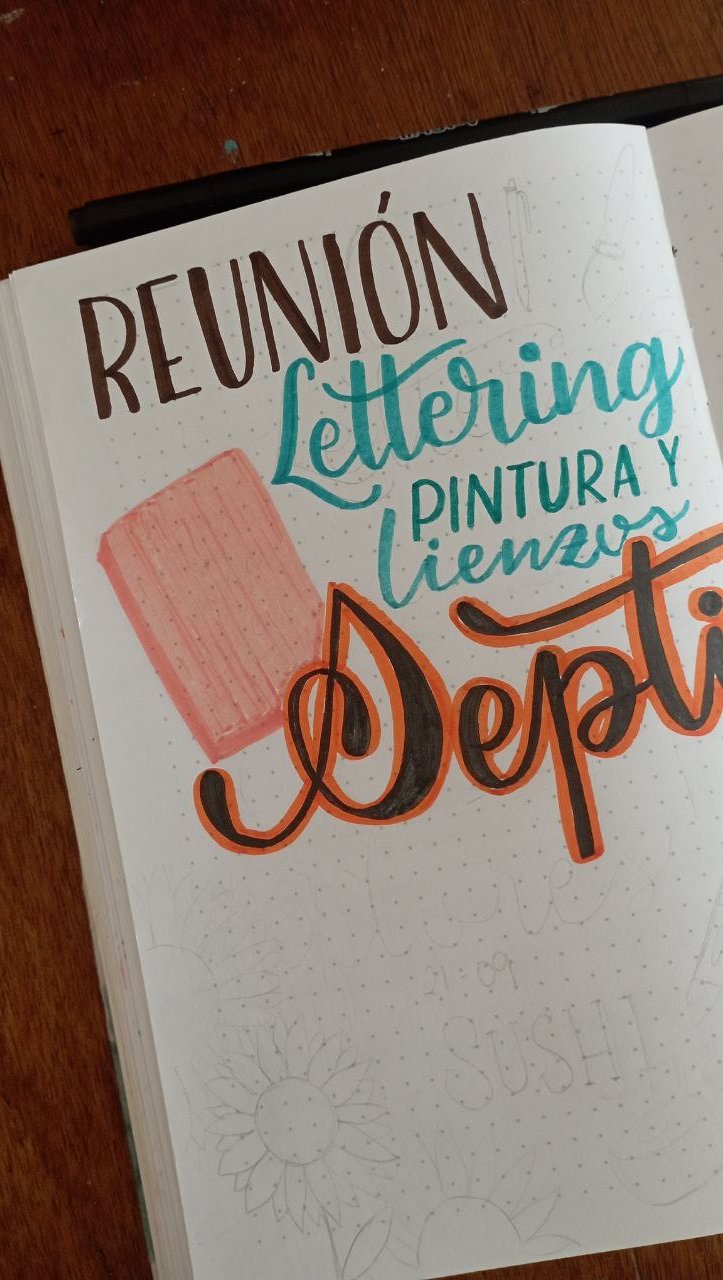 REUNIÓN
Lettering
PINTURA Y
lienzos
Septi
21-09
SUSHI